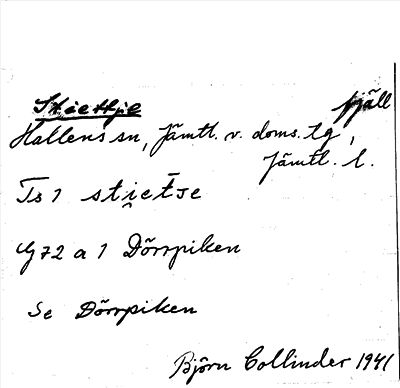 Stietjie fjäll
Hallens sn, Jämtl. v. doms. tg,
Jämtl. l.
Ts 1 stietje
G 72 a 1 Dörrpiken
Se Dörrpiken
Björn Collinder 1941